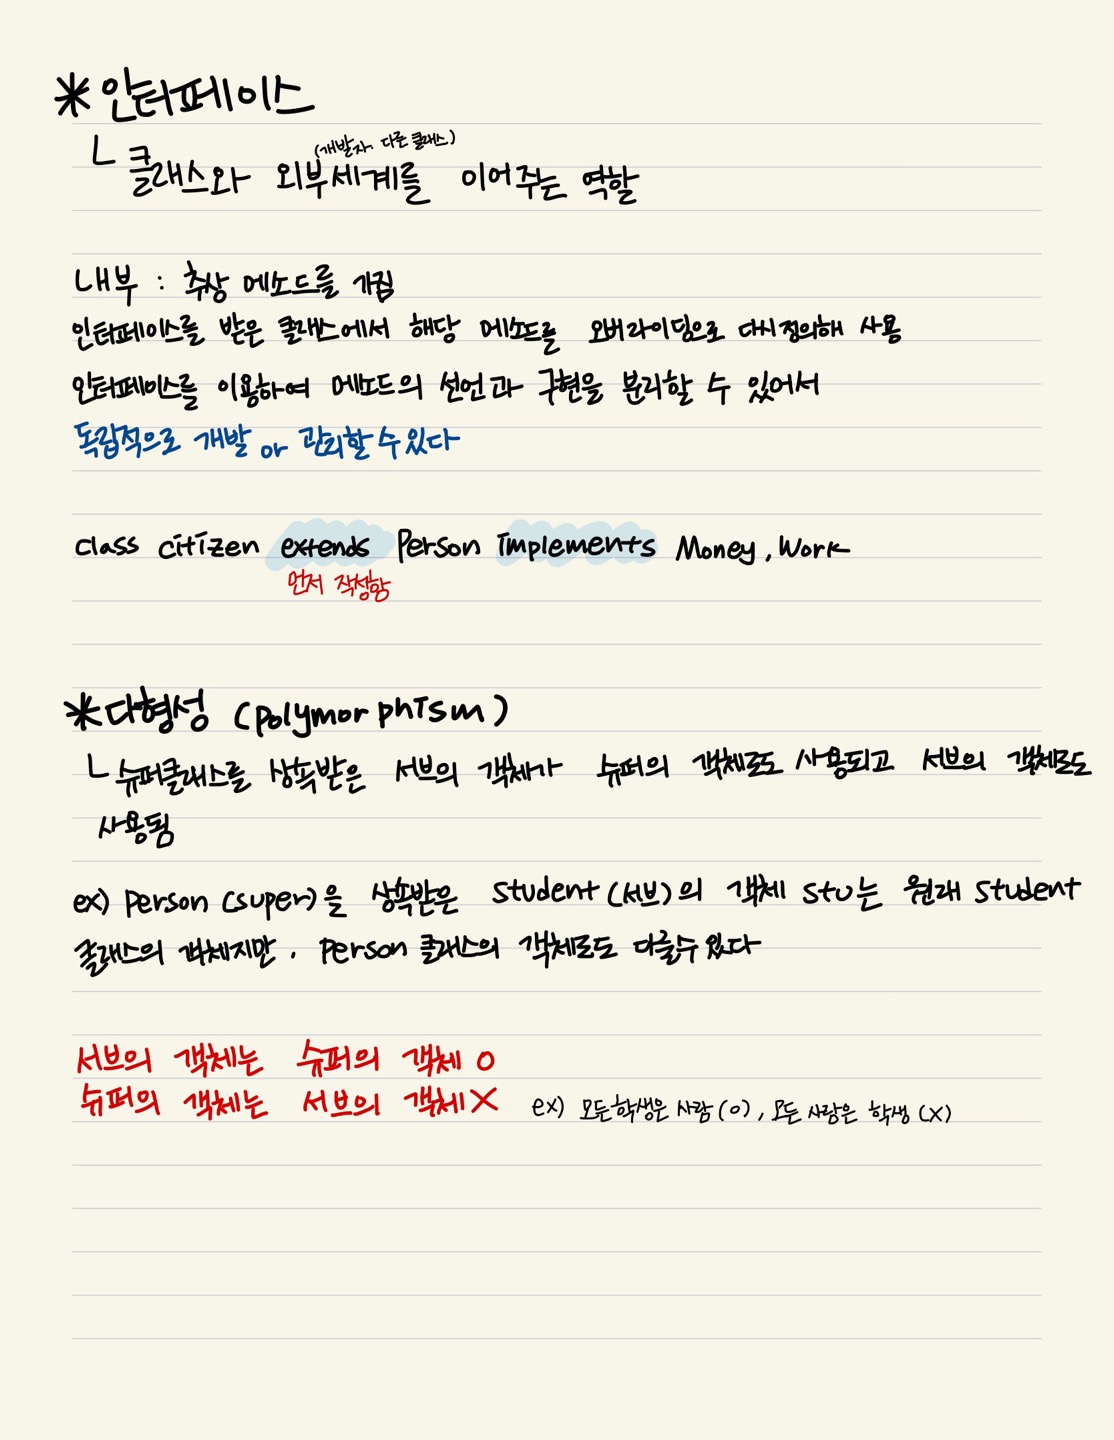 * 인터페이스
(개발자. 다른 클래스)
ㄴ 클래스와 외부세계를 이어주는 역할
내부 : 추상 메소드를 가짐
인터페이스를 받은 클래스에서 해당 메소드를 오버라이딩으로 다시 정의해 사용
인터페이스를 이용하여 메소드의 선언과 구현을 분리할 수 있어서
독립적으로 개발 or 관리할 수 있다
class citizen extends Person implements Money, Work
먼저 작성함
* 다형성 (polymorphism)
ㄴ 슈퍼클래스를 상속받은 서브의 객체가 슈퍼의 객체로도 사용되고 서브의 객체로도
사용됨
ex) person (super)을 상속받은 student (서브)의 객체 stu는 원래 student
클래스의 객체지만, person 클래스의 객체로도 다룰 수 있다
서브의 객체는 슈퍼의 객체 O
슈퍼의 객체는 서브의 객체 X
ex) 모든 학생은 사람 (o), 모든 사람은 학생 (x)